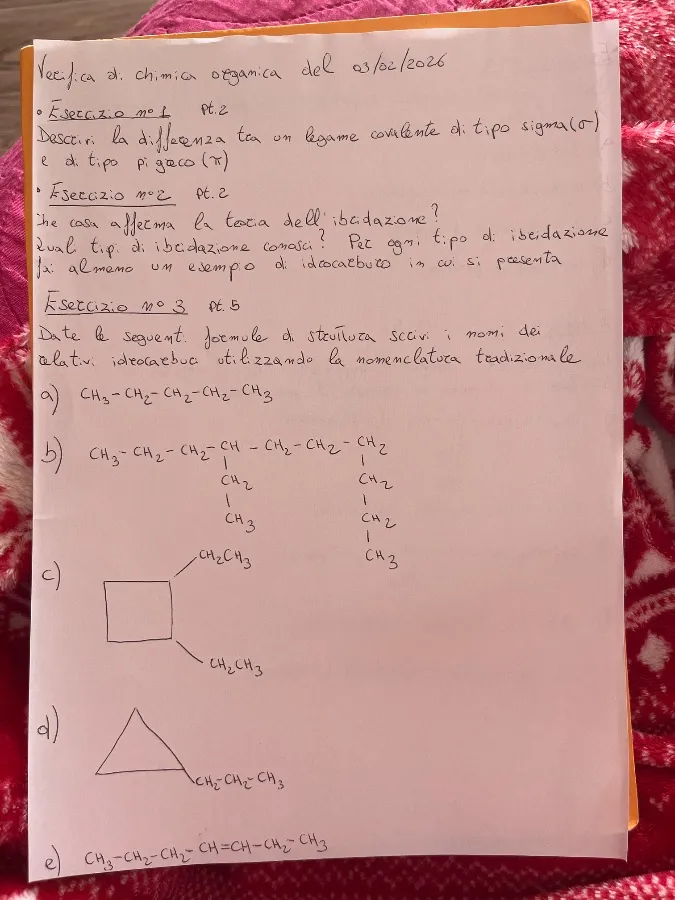 Verifica di chimica organica del 03/02/2026
• Esercizio n° 1 Pt. 2
Descrivi la differenza tra un legame covalente di tipo sigma (σ)
e di tipo pi greco (π)
• Esercizio n° 2 Pt. 2
Che cosa afferma la teoria dell'ibridazione?
Quali tipi di ibridazione conosci? Per ogni tipo di ibridazione
fai almeno un esempio di idrocarburo in cui si presenta
Esercizio n° 3 Pt. 5
Date le seguenti formule di struttura scrivi i nomi dei
relativi idrocarburi utilizzando la nomenclatura tradizionale
a) CH3-CH2-CH2-CH2-CH3
b) CH3-CH2-CH2-CH-CH2-CH2-CH2
CH2 CH2
CH3 CH2
CH3
c) CH2CH3
CH2CH3
d) CH2-CH2-CH3
e) CH3-CH2-CH2-CH=CH-CH2-CH3